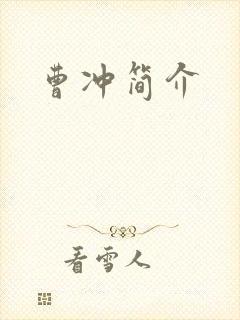 曹冲简介
看雪人